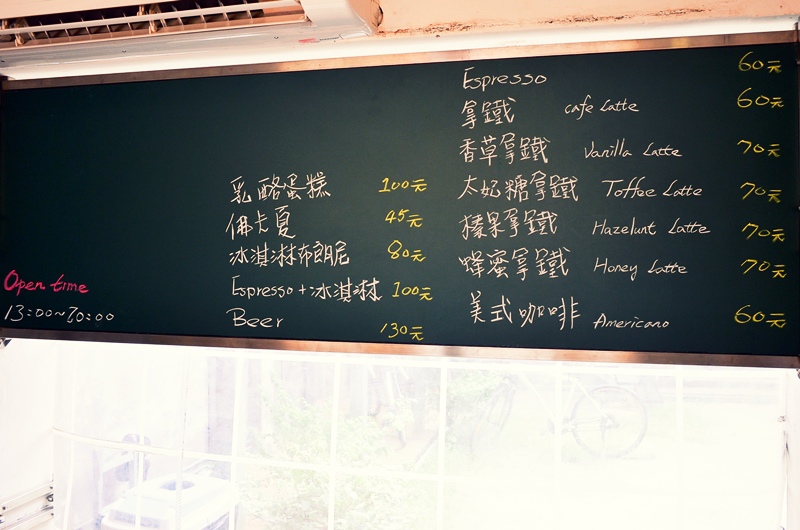 Open time
13:00~20:00
乳酪蛋糕 100元
佛卡夏 45元
冰淇淋布朗尼 80元
Espresso+冰淇淋 100元
Beer 130元
Espresso 60元
拿鐵 cafe Latte 60元
香草拿鐵 Vanilla Latte 70元
太妃糖拿鐵 Toffee Latte 70元
榛果拿鐵 Hazelunt Latte 70元
蜂蜜拿鐵 Honey Latte 70元
美式咖啡 Americano 60元